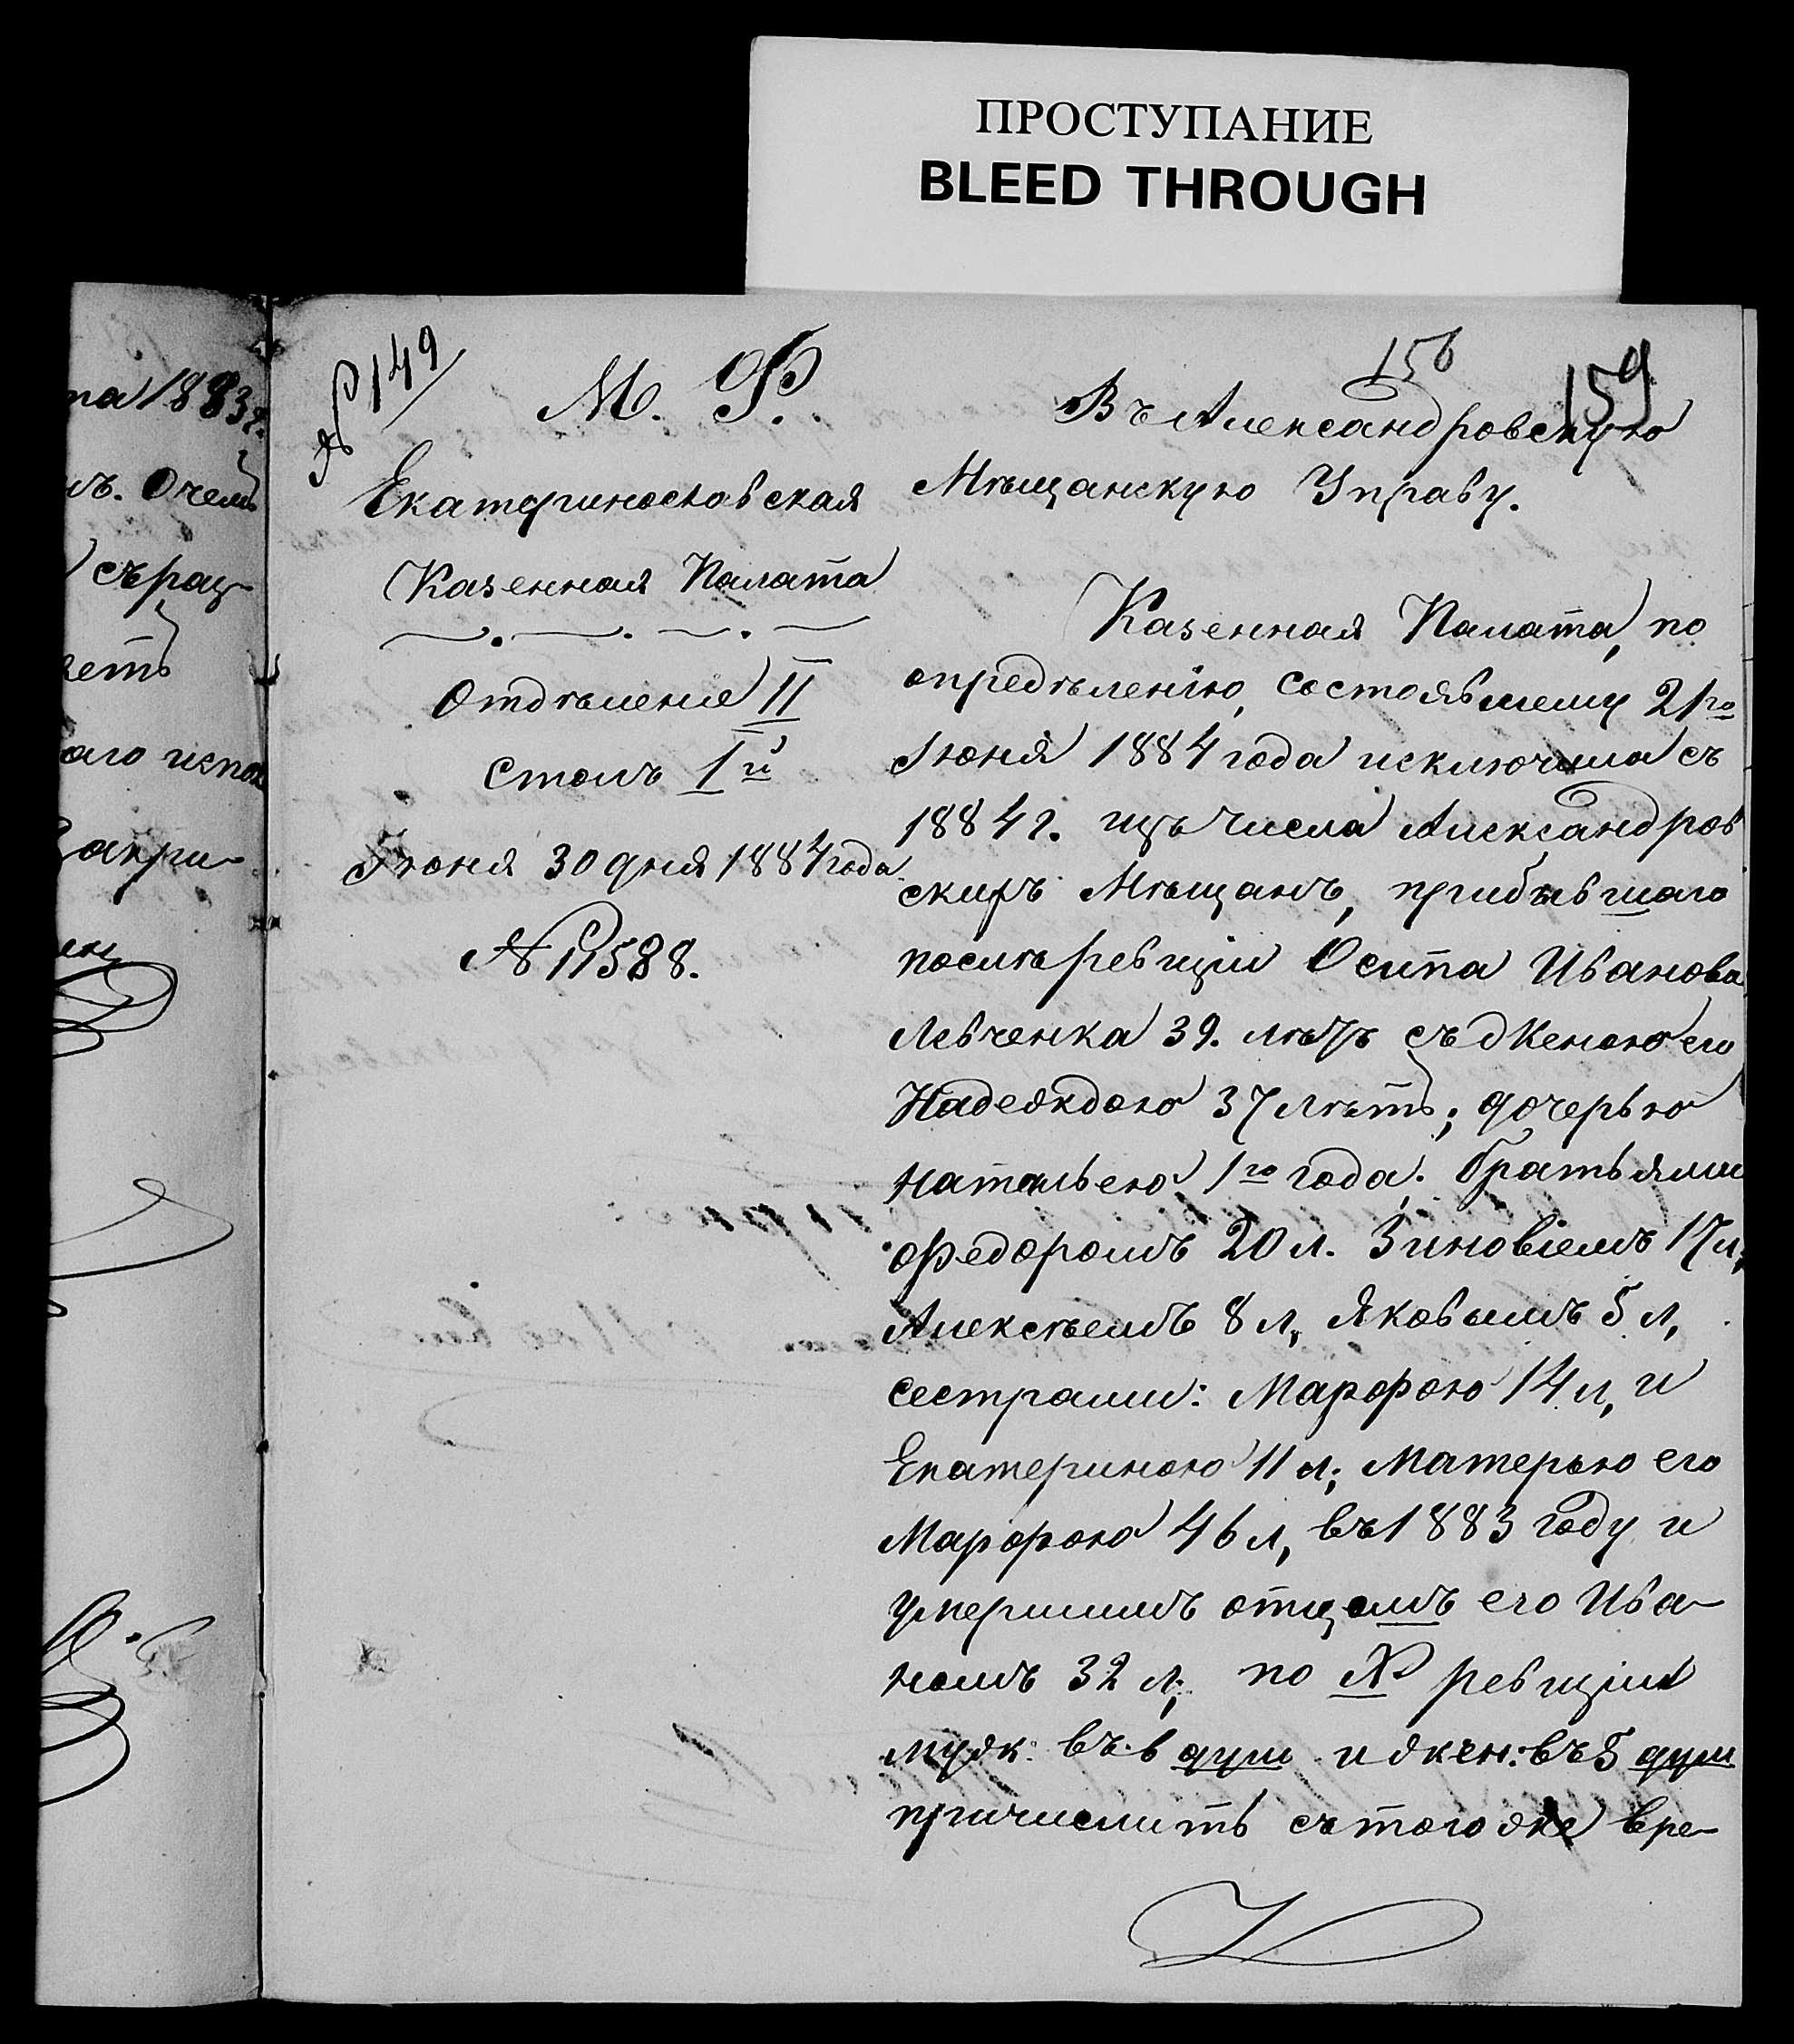 ПРОСТУПАНИЕ
BLEED THROUGH
та 1883 г.
ъ. О чемъ
съ рац-
аетъ
аго испол
Закри-
№ 149
М. Ф.
Екатеринославская
Казенная Палата
Отдѣленіе II
Столъ 1й
Іюня 30 дня 1884 года
№ 11588.
156
159
Въ Александровскую
Мѣщанскую Управу.
Казенная Палата, по
опредѣленію, состоявшему 21го
Іюня 1884 года исключила съ
1884 г. изъ числа Александров
скихъ Мѣщанъ, прибывшаго
послѣ ревизіи Осипа Иванова
Левченка 39. лѣтъ съ женою его
Надеждою 37 лѣтъ; дочерью
Натальею 1го года. братьями
Федоромъ 20 л. Зиновіемъ 17 л,
Алексѣемъ 8 л, Яковымъ 5 л,
сестрами: Марфою 14 л, и
Екатериною 11 л; Матерью его
Марфою 46 л, въ 1883 году и
умершимъ отцемъ его Ива-
номъ 32 л; по X ревизіи
муж. въ 6 душ и жен: въ 5 душ
причислить съ того же вре-